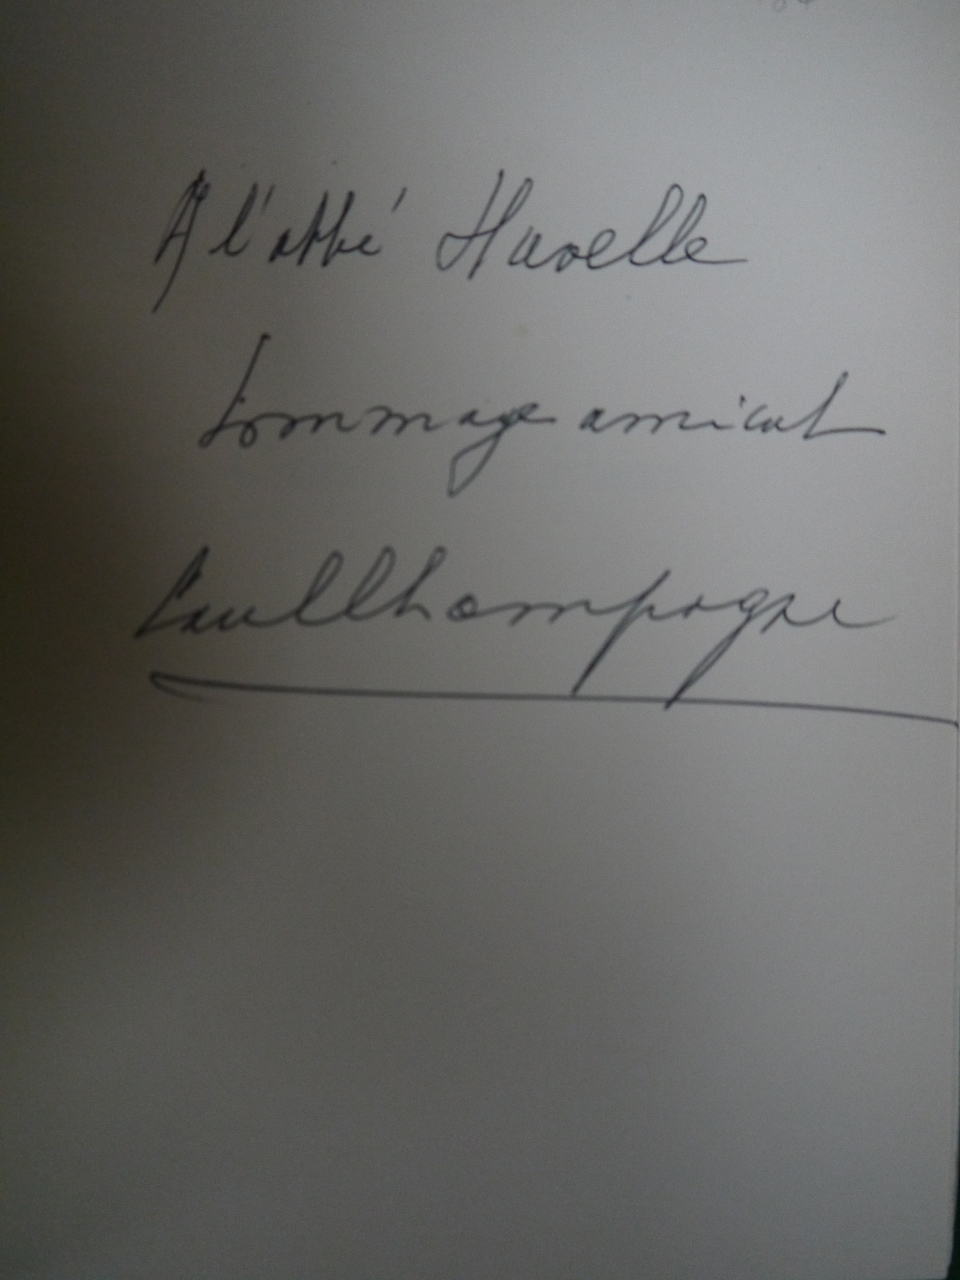 A l'abbé Havelle
hommage amical
Paul Champagne